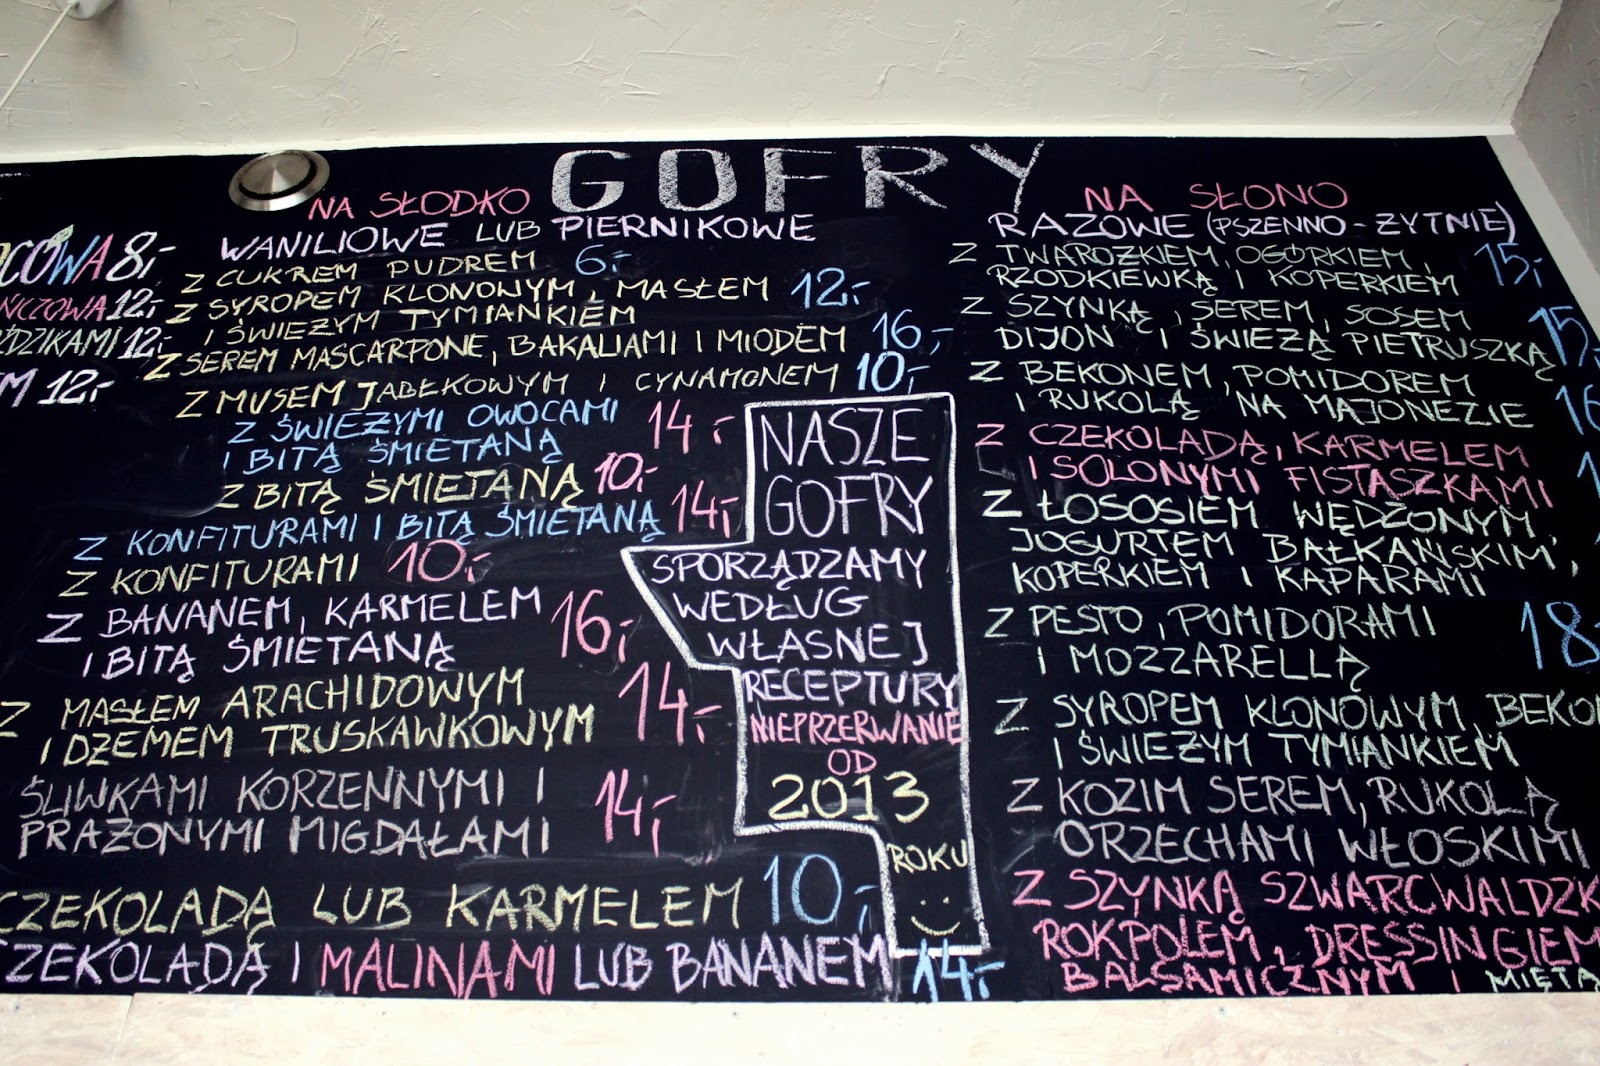 GOFRY
8,-
12,-
12,-
12,-
NA SŁODKO
WANILIOWE LUB PIERNIKOWE
Z CUKREM PUDREM 6,-
Z SYROPEM KLONOWYM, MASŁEM 12,-
I ŚWIEŻYM TYMIANKIEM
Z SEREM MASCARPONE, BAKALIAMI I MIODEM 16,-
Z MUSEM JABŁKOWYM I CYNAMONEM 10,-
Z ŚWIEŻYMI OWOCAMI 14,-
I BITĄ ŚMIETANĄ
Z BITĄ ŚMIETANĄ 10,-
Z KONFITURAMI I BITĄ ŚMIETANĄ 14,-
Z KONFITURAMI 10,-
Z BANANEM, KARMELEM 16,-
I BITĄ ŚMIETANĄ
Z MASŁEM ARACHIDOWYM 14,-
I DŻEMEM TRUSKAWKOWYM
ŚLIWKAMI KORZENNYMI I 14,-
PRAŻONYMI MIGDAŁAMI
CZEKOLADĄ LUB KARMELEM 10,-
CZEKOLADĄ I MALINAMI LUB BANANEM 14,-
NASZE
GOFRY
SPORZĄDZAMY
WEDŁUG
WŁASNEJ
RECEPTURY
NIEPRZERWANIE
OD
2013
ROKU
NA SŁONO
RAZOWE (PSZENNO-ŻYTNIE)
Z TWAROŻKIEM, OGÓRKIEM, 15,-
RZODKIEWKĄ I KOPERKIEM
Z SZYNKĄ, SEREM, SOSEM 15,-
DIJON I ŚWIEŻĄ PIETRUSZKĄ
Z BEKONEM, POMIDOREM
I RUKOLĄ NA MAJONEZIE
Z CZEKOLADĄ, KARMELEM
I SOLONYMI FISTASZKAMI
Z ŁOSOSIEM WĘDZONYM,
JOGURTEM BAŁKAŃSKIM,
KOPERKIEM I KAPARAMI
Z PESTO, POMIDORAMI 18,-
I MOZZARELLĄ
Z SYROPEM KLONOWYM, BEKO
I ŚWIEŻYM TYMIANKIEM
Z KOZIM SEREM, RUKOLĄ
ORZECHAMI WŁOSKIMI
Z SZYNKĄ SZWARCWALDZK
ROKPOLEM, DRESSINGIEM
BALSAMICZNYM I MIĘTĄ